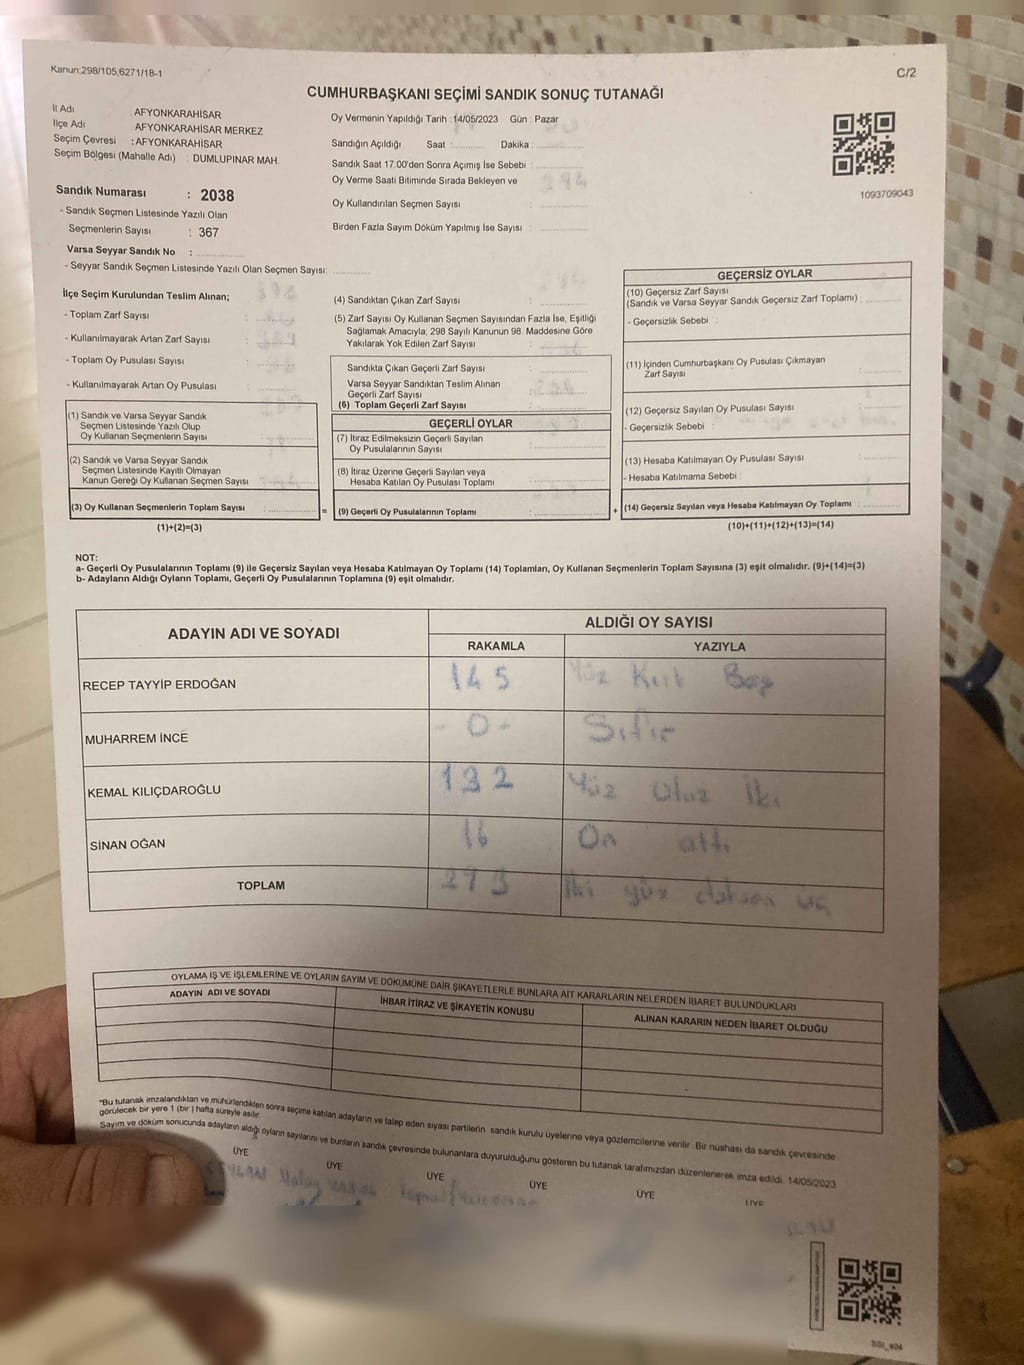 Kanun:298/105,6271/1B-1
C/2
CUMHURBAŞKANI SEÇİMİ SANDIK SONUÇ TUTANAĞI
İl Adı : AFYONKARAHİSAR
İlçe Adı : AFYONKARAHİSAR MERKEZ
Seçim Çevresi : AFYONKARAHİSAR
Seçim Bölgesi (Mahalle Adı) : DUMLUPINAR MAH.
Sandık Numarası : 2038
- Sandık Seçmen Listesinde Yazılı Olan
Seçmenlerin Sayısı : 367
Varsa Seyyar Sandık No :
- Seyyar Sandık Seçmen Listesinde Yazılı Olan Seçmen Sayısı:
Oy Vermenin Yapıldığı Tarih : 14/05/2023 Gün : Pazar
Sandığın Açıldığı Saat : Dakika :
Sandık Saat 17.00'den Sonra Açımış İse Sebebi :
Oy Verme Saati Bitiminde Sırada Bekleyen ve
Oy Kullandırılan Seçmen Sayısı :
Birden Fazla Sayım Döküm Yapılmış İse Sayısı :
1093709043
İlçe Seçim Kurulundan Teslim Alınan;
- Toplam Zarf Sayısı :
- Kullanılmayarak Artan Zarf Sayısı :
- Toplam Oy Pusulası Sayısı :
- Kullanılmayarak Artan Oy Pusulası :
(1) Sandık ve Varsa Seyyar Sandık
Seçmen Listesinde Yazılı Olup
Oy Kullanan Seçmenlerin Sayısı :
(2) Sandık ve Varsa Seyyar Sandık
Seçmen Listesinde Kayıtlı Olmayan
Kanun Gereği Oy Kullanan Seçmen Sayısı :
(3) Oy Kullanan Seçmenlerin Toplam Sayısı : =
(1)+(2)=(3)
(4) Sandıktan Çıkan Zarf Sayısı :
(5) Zarf Sayısı Oy Kullanan Seçmen Sayısından Fazla İse, Eşitliği
Sağlamak Amacıyla, 298 Sayılı Kanunun 98. Maddesine Göre
Yakılarak Yok Edilen Zarf Sayısı :
Sandıkta Çıkan Geçerli Zarf Sayısı :
Varsa Seyyar Sandıktan Teslim Alınan
Geçerli Zarf Sayısı :
(6) Toplam Geçerli Zarf Sayısı :
GEÇERLİ OYLAR
(7) İtiraz Edilmeksizin Geçerli Sayılan
Oy Pusulalarının Sayısı :
(8) İtiraz Üzerine Geçerli Sayılan veya
Hesaba Katılan Oy Pusulası Toplamı :
(9) Geçerli Oy Pusulalarının Toplamı : +
GEÇERSİZ OYLAR
(10) Geçersiz Zarf Sayısı
(Sandık ve Varsa Seyyar Sandık Geçersiz Zarf Toplamı) :
- Geçersizlik Sebebi :
(11) İçinden Cumhurbaşkanı Oy Pusulası Çıkmayan
Zarf Sayısı :
(12) Geçersiz Sayılan Oy Pusulası Sayısı :
- Geçersizlik Sebebi :
(13) Hesaba Katılmayan Oy Pusulası Sayısı :
- Hesaba Katılmama Sebebi :
(14) Geçersiz Sayılan veya Hesaba Katılmayan Oy Toplamı :
(10)+(11)+(12)+(13)=(14)
NOT:
a- Geçerli Oy Pusulalarının Toplamı (9) ile Geçersiz Sayılan veya Hesaba Katılmayan Oy Toplamı (14) Toplamları, Oy Kullanan Seçmenlerin Toplam Sayısına (3) eşit olmalıdır. (9)+(14)=(3)
b- Adayların Aldığı Oyların Toplamı, Geçerli Oy Pusulalarının Toplamına (9) eşit olmalıdır.
ADAYIN ADI VE SOYADI
ALDIĞI OY SAYISI
RAKAMLA YAZIYLA
RECEP TAYYİP ERDOĞAN 145 Yüz Kırk Beş
MUHARREM İNCE - 0 - Sıfır
KEMAL KILIÇDAROĞLU 132 Yüz Otuz İki
SİNAN OĞAN 16 On altı
TOPLAM 293 İki yüz doksan üç
OYLAMA İŞ VE İŞLEMLERİNE VE OYLARIN SAYIM VE DÖKÜMÜNE DAİR ŞİKAYETLERLE BUNLARA AİT KARARLARIN NELERDEN İBARET BULUNDUKLARI
ADAYIN ADI VE SOYADI
İHBAR İTİRAZ VE ŞİKAYETİN KONUSU
ALINAN KARARIN NEDEN İBARET OLDUĞU
*Bu tutanak imzalandıktan ve mühürlendikten sonra seçime katılan adayların ve talep eden siyasi partilerin sandık kurulu üyelerine veya gözlemcilerine verilir. Bir nushası da sandık çevresinde
görülecek bir yere 1 (bir) hafta süreyle asılır.
Sayım ve döküm sonucunda adayların aldığı oyların sayılarını ve bunların sandık çevresinde bulunanlara duyurulduğunu gösteren bu tutanak tarafımızdan düzenlenerek imza edildi. 14/05/2023
ÜYE ÜYE ÜYE ÜYE ÜYE ÜYE